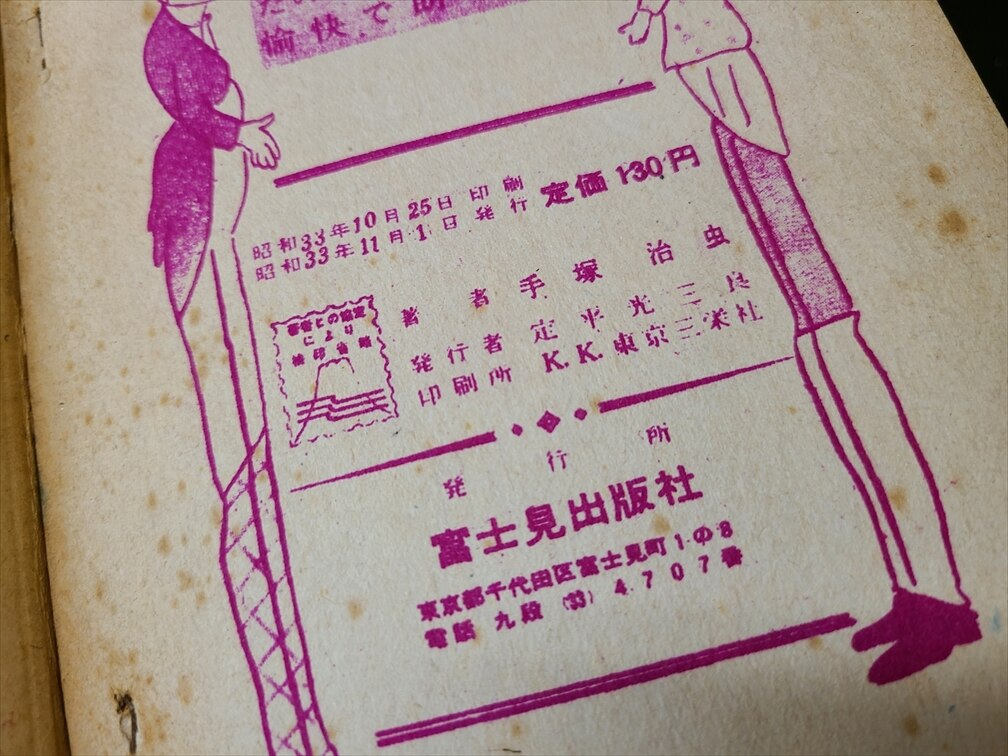 愉快で
昭和33年10月25日 印刷
昭和33年11月1日 発行
定価 130円
著者との協定
により
検印省略
著者 手塚治虫
発行者 定平光三良
印刷所 K.K.東京三栄社
発行所
富士見出版社
東京都千代田区富士見町1の8
電話 九段 (33) 4707番